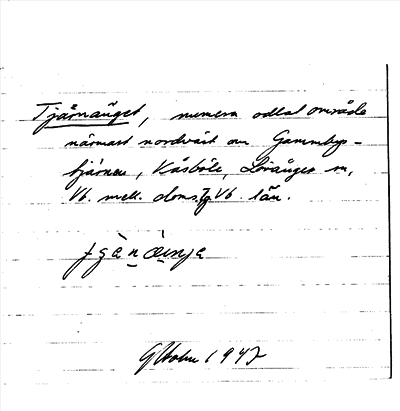 Tjärnänget, numera odlat område
närmast nordväst om Gammbys-
tjärnen, Kåsböle, Lövånger sn,
Vb. mell. doms. Vb. län.
G Holm 1947